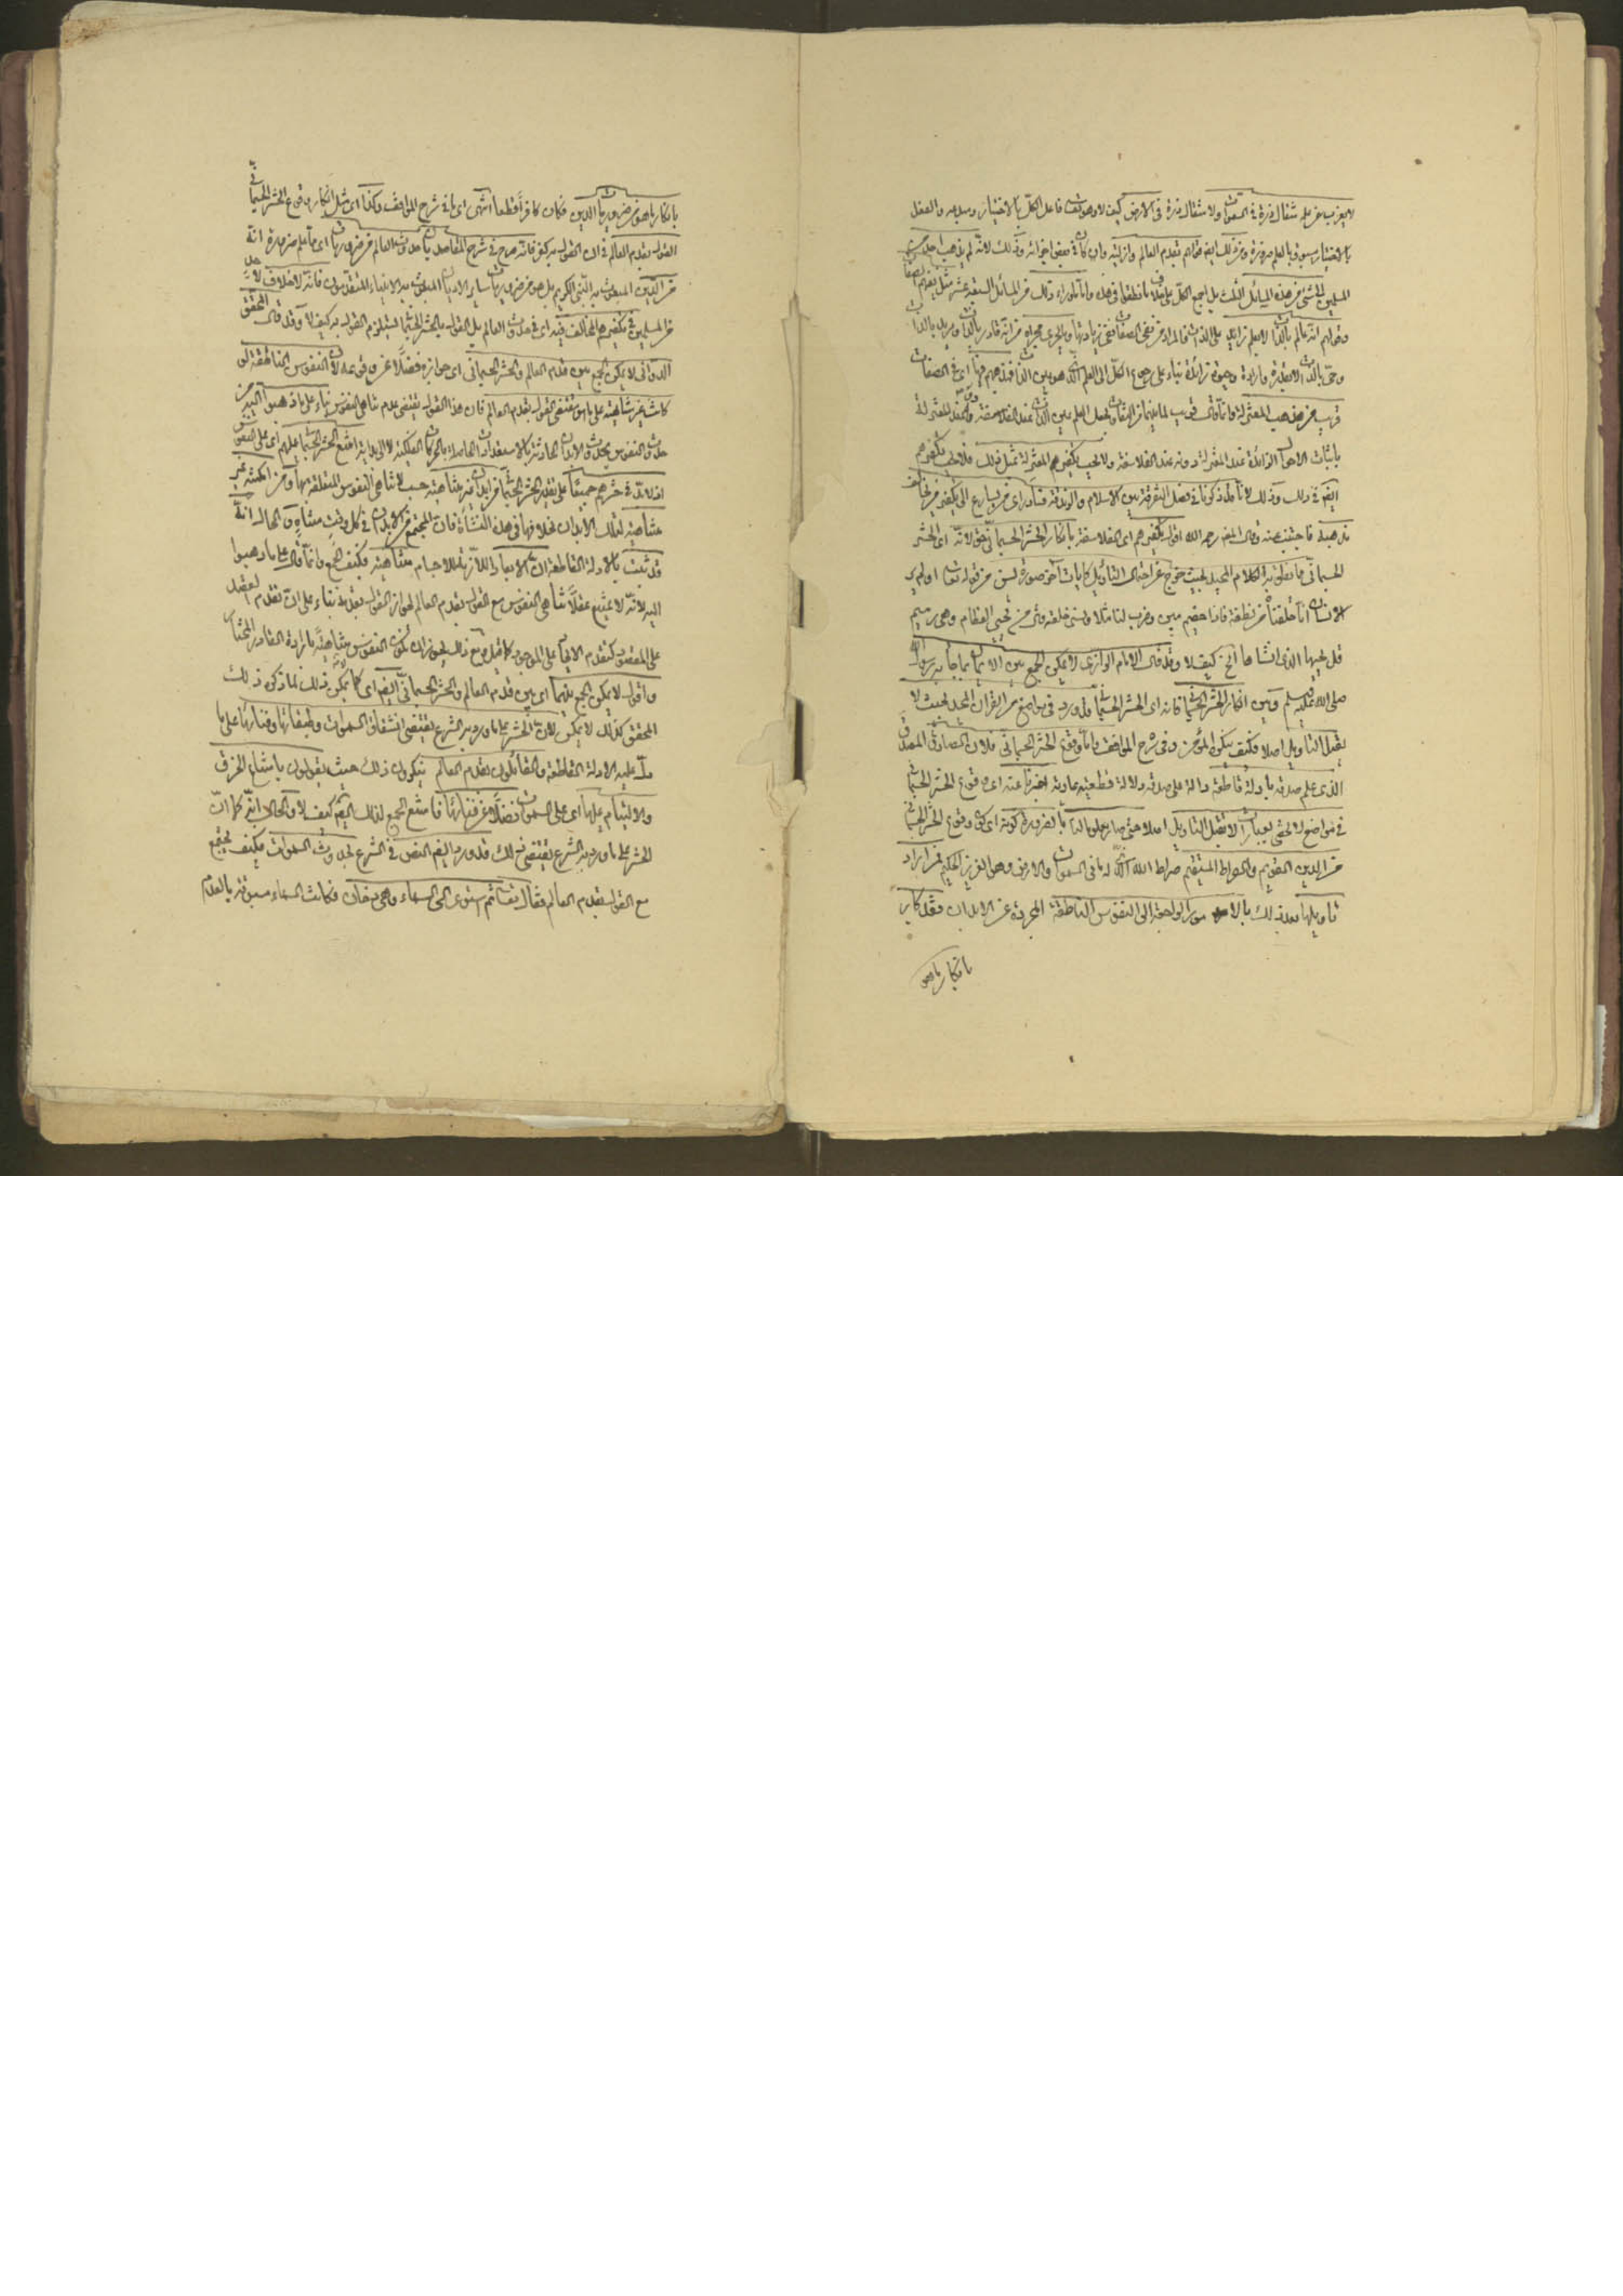 لا يعزب عن علمه مثقال ذرة في السموات ولا مثقال ذرة في الارض كيف لا وهو تعالى فاعل الكل بالاختيار والفعل
بالاختيار مسبوق بالعلم ضرورة ومن ذلك ايضا قولهم بقدم العالم وازليته وان كان في بعض اجزائه وذلك لانه لم يذهب احد من
المسلمين الى شيء من هذه المسائل الثلث بل اجمع الكل على خلاف ما نطقوا في هذه واما ما وراء ذلك من المسائل السبعة عشر مثل نفيهم الصفات
وقولهم انه عالم بالذات لا بعلم زائد على الذات فالمراد من نفي الصفات نفي زيادتها وما يجري مجراه من انه قادر بالذات ومريد بالذات
وحي بالذات لا بقدرة وارادة وحيوة زائدة بناء على رجوع الكل الى العلم الذي هو عين الذات فمذهبهم فيها اي في الصفات
قريب من مذهب المعتزلة وانما قال قريب لما بينهما من التفاوت بجعل العلم عين الذات عند الفلاسفة وعند المعتزلة
باثبات الاحوال الزائدة عند المعتزلة دونه عند الفلاسفة ولا يجب تكفيرهم المعتزلة بمثل ذلك فلا يجب تكفيرهم
ايضا في ذلك وذلك لانا قد ذكرنا في فصل التفرقة بين الاسلام والزندقة فساد رأي من يسارع الى تكفير من يخالف
مذهبه فاجتنب عنه وقال المص رحمه الله اقول تكفيرهم اي الفلاسفة بانكار الحشر الجسماني حق لانه اي الحشر
الجسماني ما نطق به الكلام المجيد بحيث خرج عن احتمال التأويل كآيات آخر سورة يس من قوله تعالى اولم ير
الانسان انا خلقناه من نطفة فاذا هو خصيم مبين وضرب لنا مثلا ونسي خلقه قال من يحيي العظام وهي رميم
قل يحييها الذي انشأها الخ كيف لا وقد قال الامام الرازي لا يمكن الجمع بين الايمان بما جاء به رسول الله
صلى الله عليه وسلم وبين انكار الحشر الجسماني فانه اي الحشر الجسماني قد ورد في مواضع من القران المجيد بحيث لا
يقبل التأويل اصلا فكيف ينكره المؤمن وفي شرح المواقف واما وقوع الحشر الجسماني فلان الصادق المصدق
الذي علم صدقه بادلة قاطعة دالة على صدقه دلالة قطعية عادية اخبر عنه اي وقوع الحشر الجسماني
في مواضع لا تحصى بعبارات لا تقبل التأويل اصلا حتى صار معلوما بالضرورة كونه اي كون وقوع الحشر الجسماني
من الدين القويم والصراط المستقيم صراط الله الذي له ما في السموات والارض وهو العزيز الحكيم فمن اراد
تأويلها بعد ذلك بالامور الراجعة الى النفوس الناطقة المجردة عن الابدان فقد كابر
بانكار ما هو
بانكار ما هو من ضروريات الدين فكان كافرا قطعا انتهى اي ما في شرح المواقف وكذا اي مثل انكار وقوع الحشر الجسماني في
القول بقدم العالم في ان القول به كفر فانه صرح في شرح المقاصد بان حدوث العالم من ضروريات اي مما علم ضرورة انه
من الدين المبعوث به النبي الكريم بل هو من ضروريات سائر الاديان المبعوث به الانبياء المتقدمون فانه لا خلاف لاحد
من المسلمين في تكفيرهم المخالف فيه اي في حدوث العالم بل القول بالحشر الجسماني يستلزم القول به كيف لا وقد قال المحقق
الدواني لا يمكن الجمع بين قدم العالم والحشر الجسماني اي جوازه فضلا عن وقوعه لان النفوس الناطقة لو
كانت غير متناهية على ما هو مقتضى القول بقدم العالم فان هذا القول يقتضي عدم تناهي النفوس بناء على ما ذهبوا اليه من
حدوث النفوس بحدوث الابدان الحادثة بالاستعدادات الحاصلة بالحركات الفلكية لا الى بداية امتنع الحشر الجسماني عليهم اي على النفوس
اذ لا بد في حشرهم جميعا على تقدير الحشر الجسماني من ابدان غير متناهية حسب لا تناهي النفوس المتعلقة بها ومن امكنة غير
متناهية لتلك الابدان بخلافها في هذه النشأة فان المجتمع من الابدان في كل وقت متناه والحال انه
قد ثبت بالادلة القاطعة ان الابعاد اللازمة للاجسام متناهية فكيف الجمع وانما قال على ما ذهبوا
اليه لانه لا يمتنع عقلا تناهي النفوس مع القول بقدم العالم لجواز القول بقدمه بناء على ان تقدم القصد
على المقصود كتقدم الايجاد على الموجود كما قيل ومع ذلك يجوز ان تكون النفوس متناهية بارادة القادر المختار
واقول لا يمكن الجمع بينهما اي بين قدم العالم والحشر الجسماني ايضا اي كما لا يمكن ذلك لما ذكره ذلك
المحقق كذلك لا يمكن لان الحشر على ما ورد به الشرع يقتضي انشقاق السموات وطبقاتها وفنائها على ما
دل عليه الادلة القاطعة والقائلون بقدم العالم ينكرون ذلك حيث يقولون بامتناع الخرق
والالتيام عليها اي على السموات فضلا عن فنائها فامتنع الجمع لذلك ايضا كيف لا والحال انه كما ان
الحشر على ما ورد به الشرع يقتضي ذلك قد ورد ايضا النص في الشرع بحدوث السموات فكيف يجتمع
مع القول بقدم العالم فقال تعالى ثم استوى الى السماء وهي دخان فكانت السماء مسبوقة بالعدم